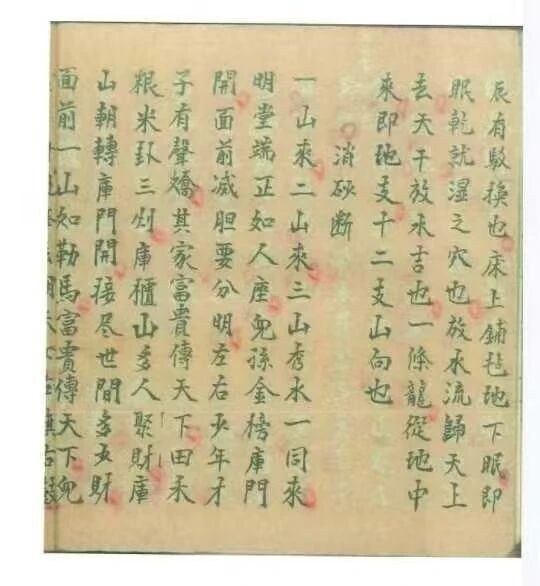 辰有駁換也床上鋪毡地下眠即
眠乾就湿之穴也放水流歸天上
去天干放水吉也一條龍從地中
來即地支十二支山向也
消砂斷
一山來二山來三山秀水一同來
明堂端正如人座兒孫金榜庫門
開面前减胆要分明左右少年才
子有聲嬌其家富貴傳天下田禾
粮米卦三刈庫櫃山多人聚財庫
山朝轉庫門開接尽世間多五財
面前一山如勒馬富貴傳天下兒